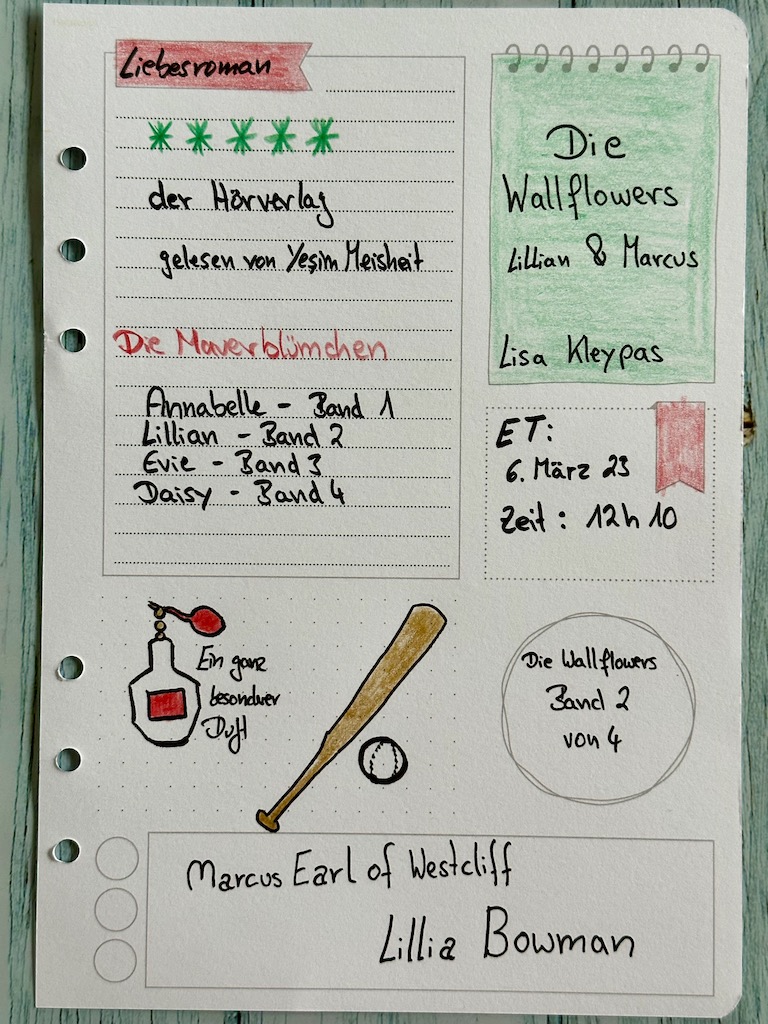 Liebesroman
der Hörverlag
gelesen von Yeşim Meisheit
Die Mauerblümchen
Annabelle - Band 1
Lillian - Band 2
Evie - Band 3
Daisy - Band 4
Die
Wallflowers
Lillian & Marcus
Lisa Kleypas
ET:
6. März 23
Zeit: 12h 10
Ein ganz
besonderer
Duft
Die Wallflowers
Band 2
von 4
Marcus Earl of Westcliff
Lillia Bowman